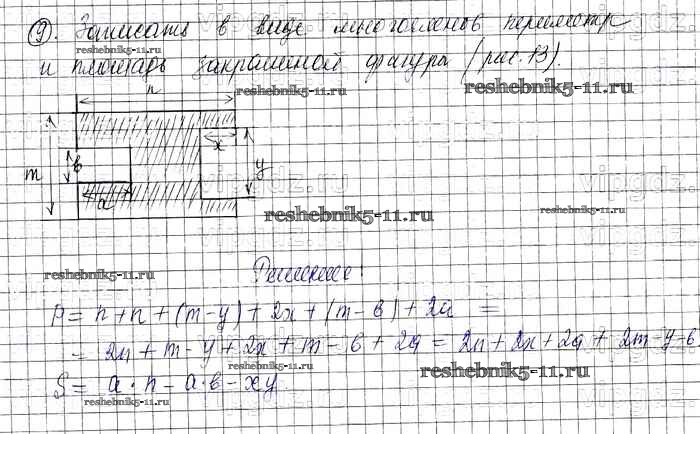 9. Записать в виде многочленов периметр
reshebnik5-11.ru
и площадь закрашенной фигуры (рис. 13).
n
reshebnik5-11.ru
reshebnik5-11.ru
x
в
y
m
vipgdz.ru
a
reshebnik5-11.ru
reshebnik5-11.ru
Решение:
reshebnik5-11.ru
P = n + n + (m - y) + 2x + (m - в) + 2a =
= 2n + m - y + 2x + m - в + 2a = 2n + 2x + 2a + 2m - y - в
reshebnik5-11.ru
reshebnik5-11.ru
S = a · n - a · в - xy
reshebnik5-11.ru